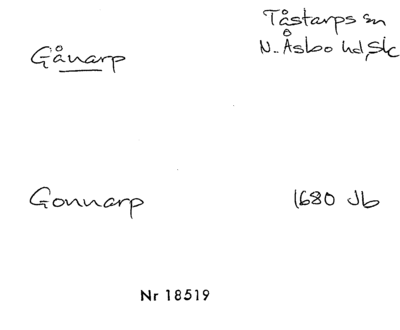 Gånarp
Tåstarps sn
N. Åsbo hd, Sk
Gonnarp
1680 Jb
Nr 18519